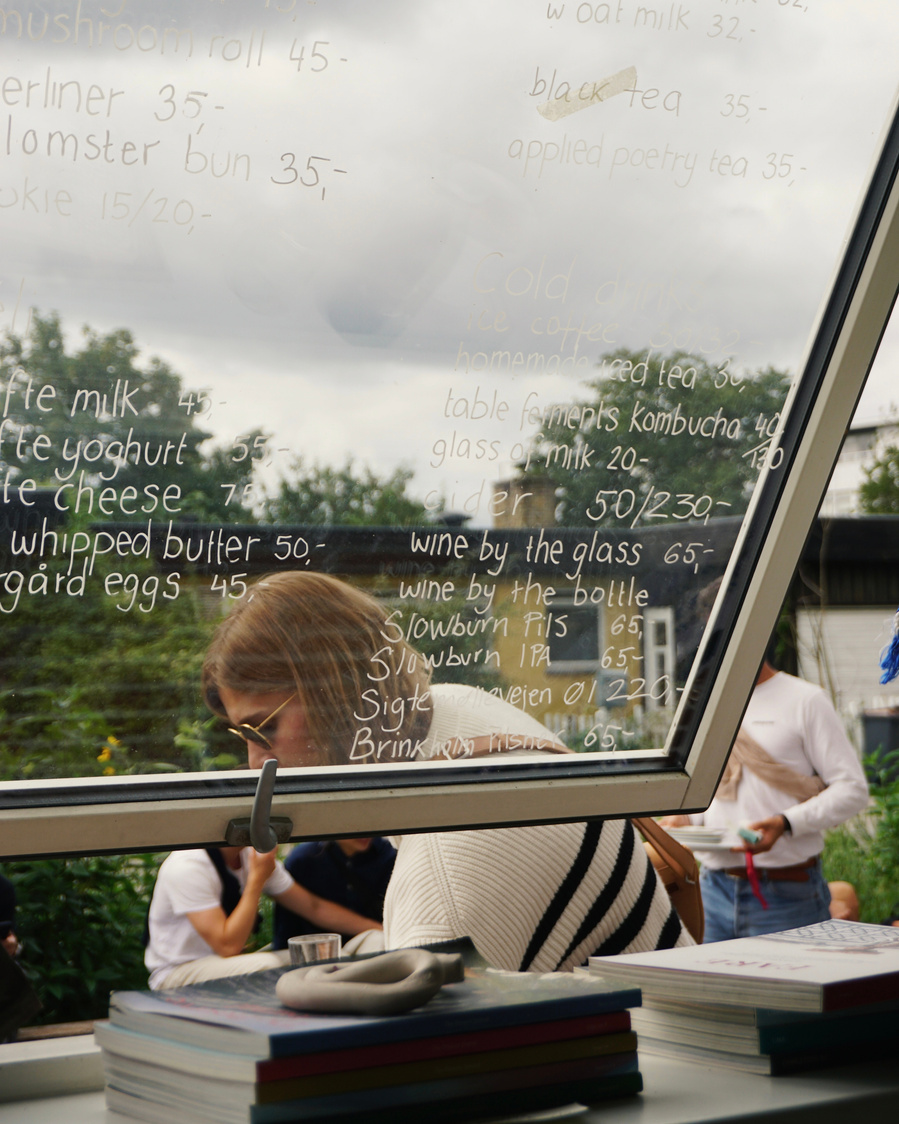 mushroom roll 45-
erliner 35,-
lomster bun 35,-
okie 15/20,-
fte milk 45,-
fte yoghurt 55,-
te cheese
whipped butter 50,-
rgård eggs 45,
w oat milk 32,-
black tea 35,-
applied poetry tea 35,-
Cold drinks
ice coffee
homemade iced tea
table ferments kombucha 40
130
glass of milk 20-
cider 50/230,-
wine by the glass 65,-
wine by the bottle
Slowburn Pils 65,
Slowburn IPA 65,-
220,-
Brinkholm Pilsner 65,-